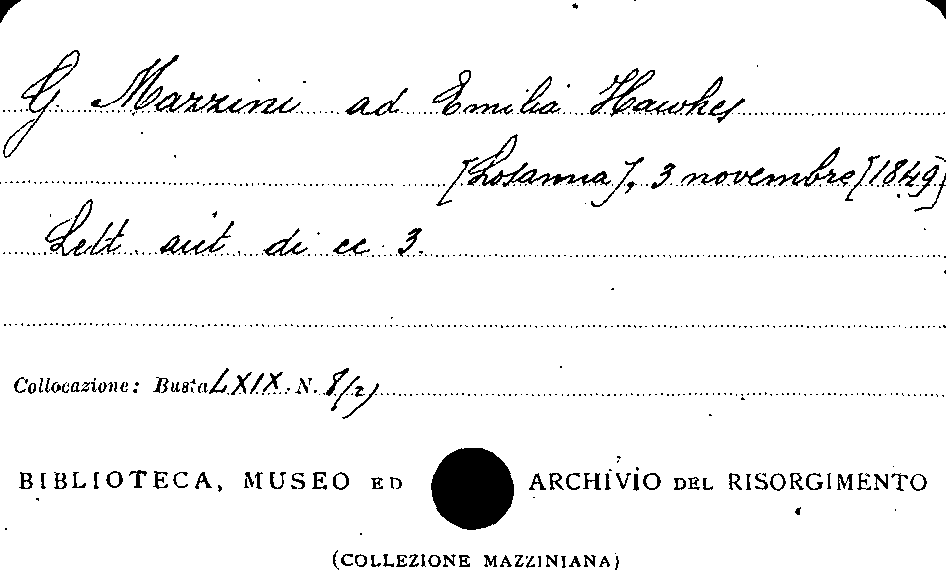 G. Mazzini ad Emilia Hawkes
[Losanna], 3 novembre [1849]
Lett. aut. di cc. 3.
Collocazione: Busta LXIX. N. 8/2)
BIBLIOTECA, MUSEO ED ARCHIVIO DEL RISORGIMENTO
(COLLEZIONE MAZZINIANA)